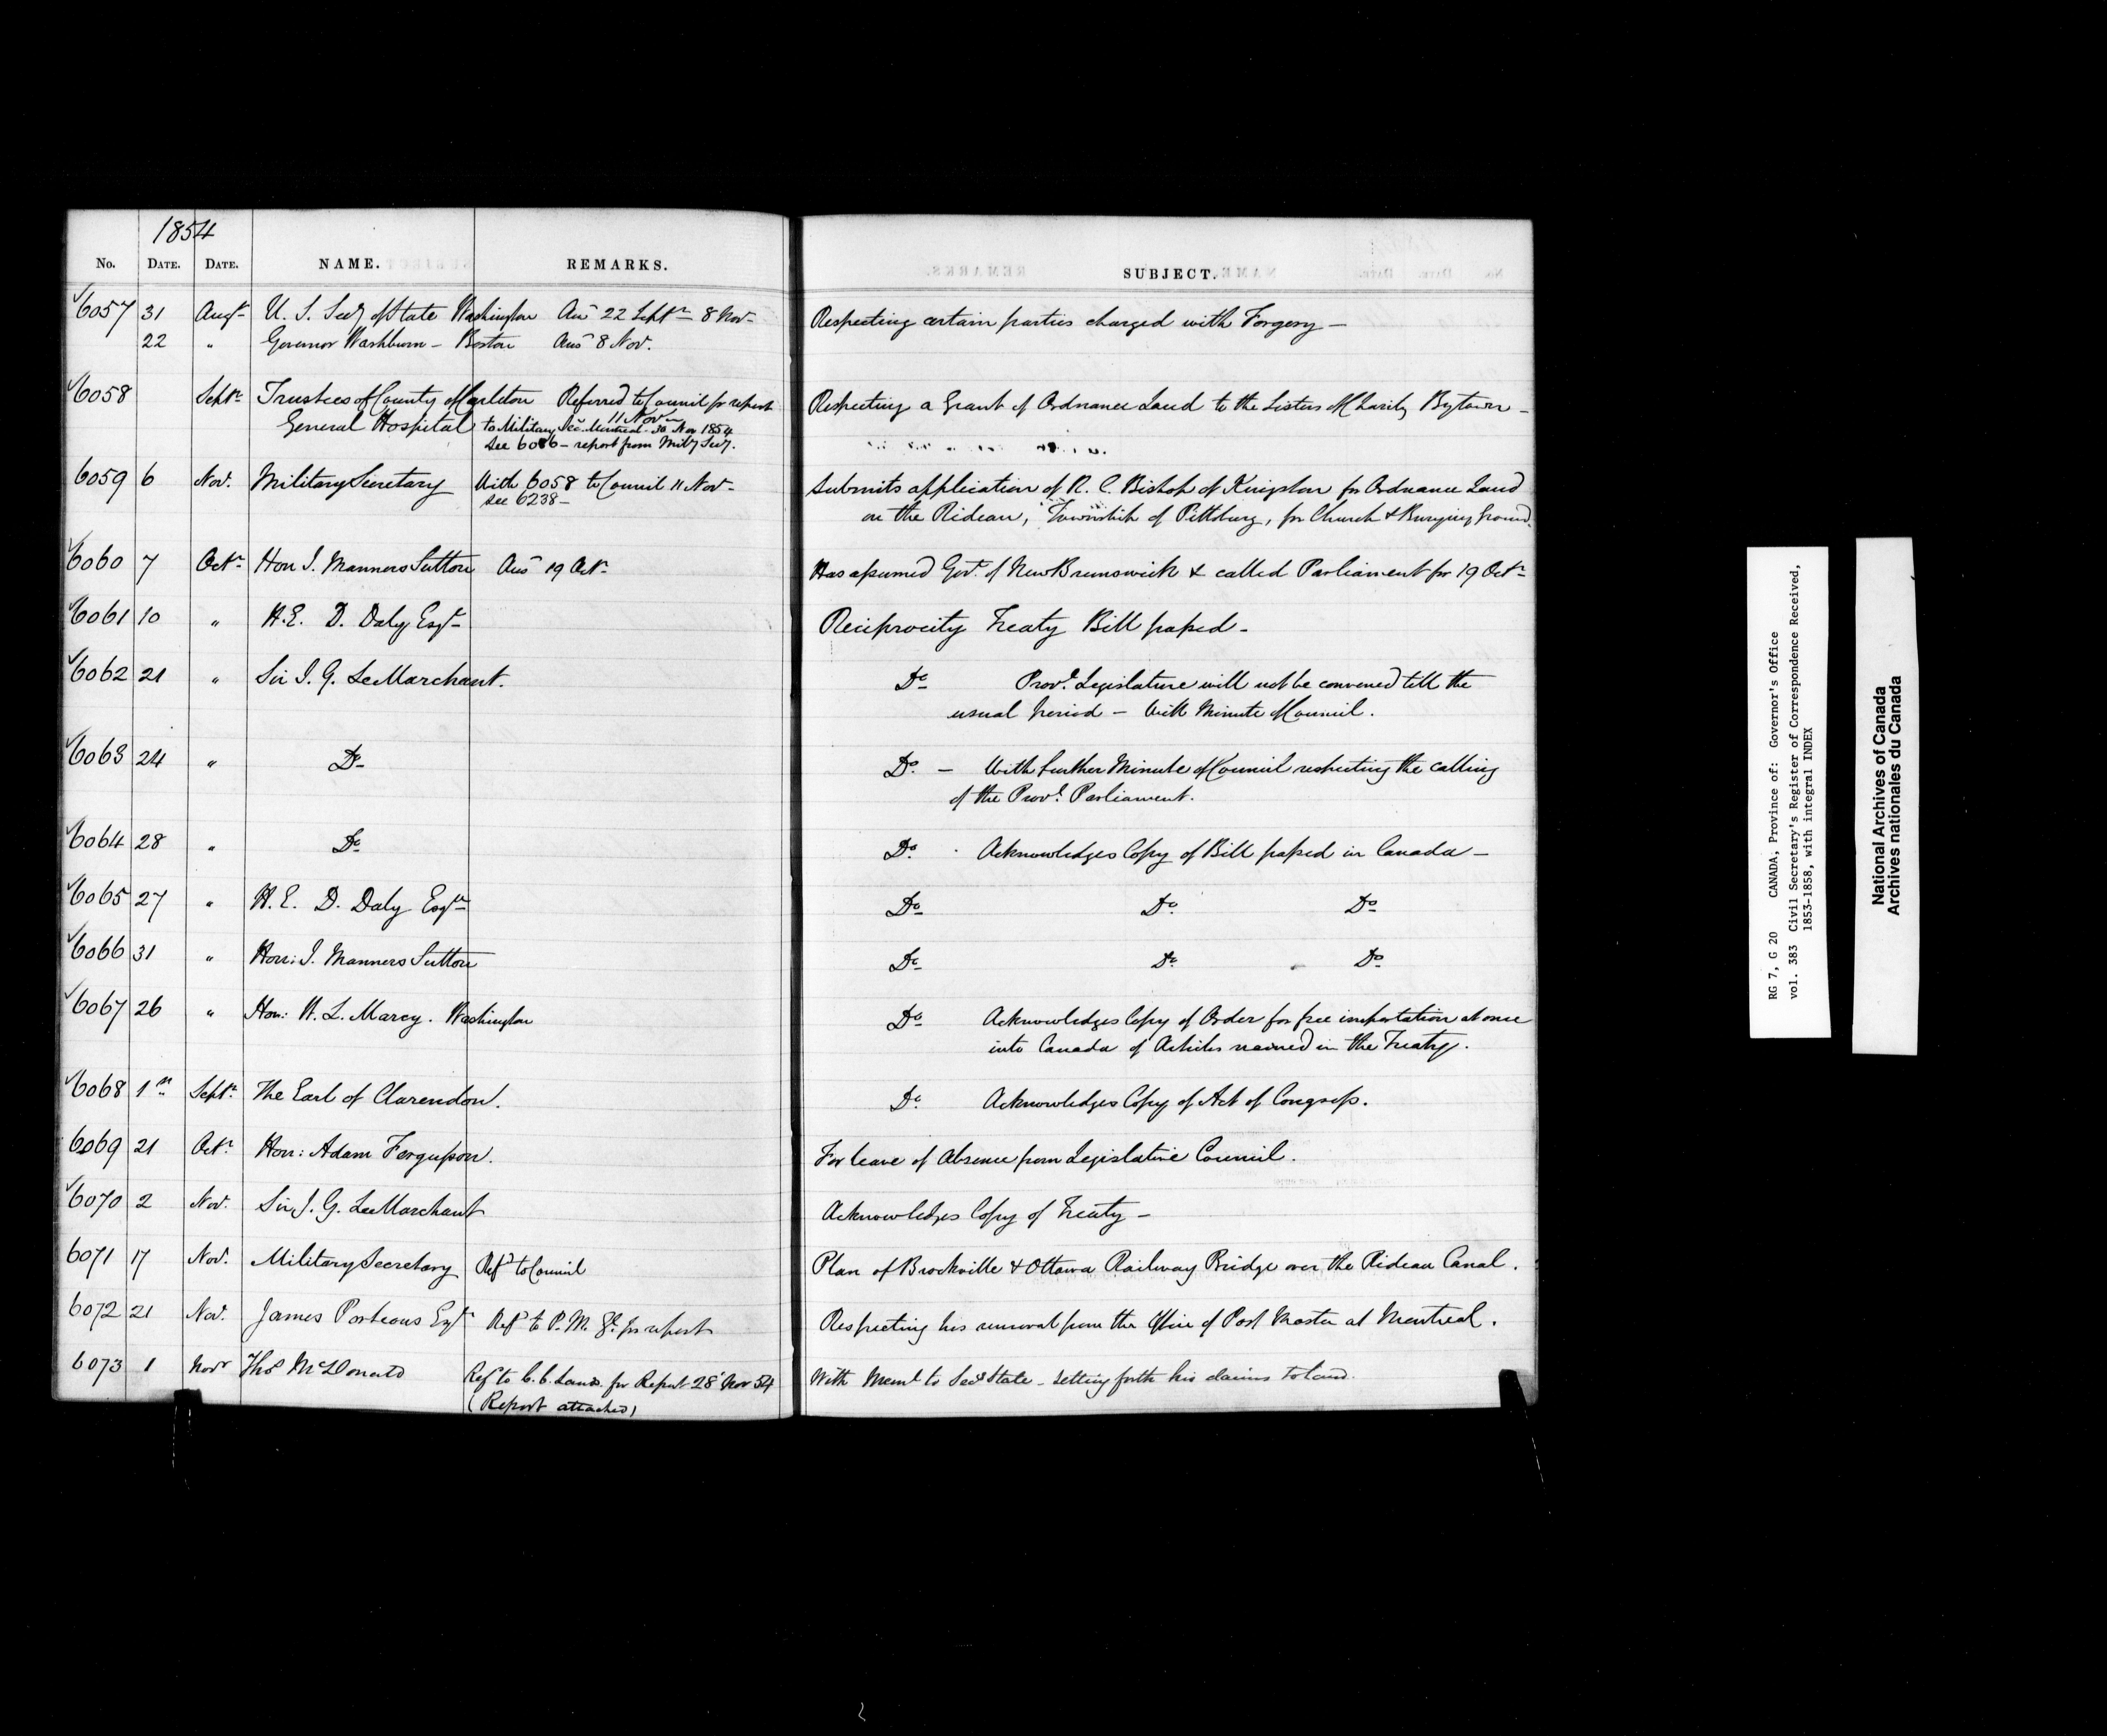 1854
No. DATE. DATE. NAME. REMARKS. SUBJECT.
6057 31 Augt U. S. Secy of State Washington Ansd 22 Septr 8 Nov- Respecting certain parties charged with Forgery –
22 " Governor Washburn – Boston Ansd 8 Nov.
6058 Septr Trustees of County of Carleton Referred to Council for report Respecting a Grant of Ordnance Land to the Sisters of Charity Bytown –
11 Novr
General Hospital to Military Sec. Montreal 30 Nov 1854
See 6086 – report from Mily Secy.
6059 6 Nov. Military Secretary With 6058 to Council 11 Nov – Submits application of R. C. Bishop of Kingston for Ordnance Land
see 6238 – on the Rideau, Township of Pittsburg, for Church & Burying Ground.
6060 7 Octr Hon J. Manners Sutton Ansd 19 Octr Has assumed Govt. of New Brunswick & called Parliament for 19 Octr
6061 10 " H.E. D. Daly Esqr Reciprocity Treaty Bill passed –
6062 21 " Sir J. G. LeMarchant. Do Provl. Legislature will not be convened till the
usual period – With Minute of Council.
6063 24 " Do Do. – With further Minute of Council respecting the calling
of the Provl. Parliament.
6064 28 " Do Do. Acknowledges Copy of Bill passed in Canada –
6065 27 " H.E. D. Daly Esqre Do Do. Do
6066 31 " Hon: J. Manners Sutton Do Do. Do
6067 26 " Hon: W. L. Marcy. Washington Do Acknowledges Copy of Order for free importation at once
into Canada of Articles named in the Treaty.
6068 1st Septr. The Earl of Clarendon. Do. Acknowledges Copy of Act of Congress.
6069 21 Octr. Hon: Adam Fergusson. For leave of Absence from Legislative Council.
6070 2 Nov. Sir J. G. LeMarchant Acknowledges Copy of Treaty –
6071 17 Nov. Military Secretary Refd to Council Plan of Brockville & Ottawa Railway Bridge over the Rideau Canal.
6072 21 Nov. James Porteous Esqr Refd to P. M. Gl. for report Respecting his removal from the Office of Post Master at Montreal.
6073 1 Novr Thos McDonald Ref to C. C. Lands for Report 28 Nov 54 With Meml to Secy State – setting forth his claims to land.
(Report attached)
RG 7, G 20 CANADA, Province of: Governor's Office
vol. 383 Civil Secretary's Register of Correspondence Received,
1853-1858, with integral INDEX
National Archives of Canada
Archives nationales du Canada